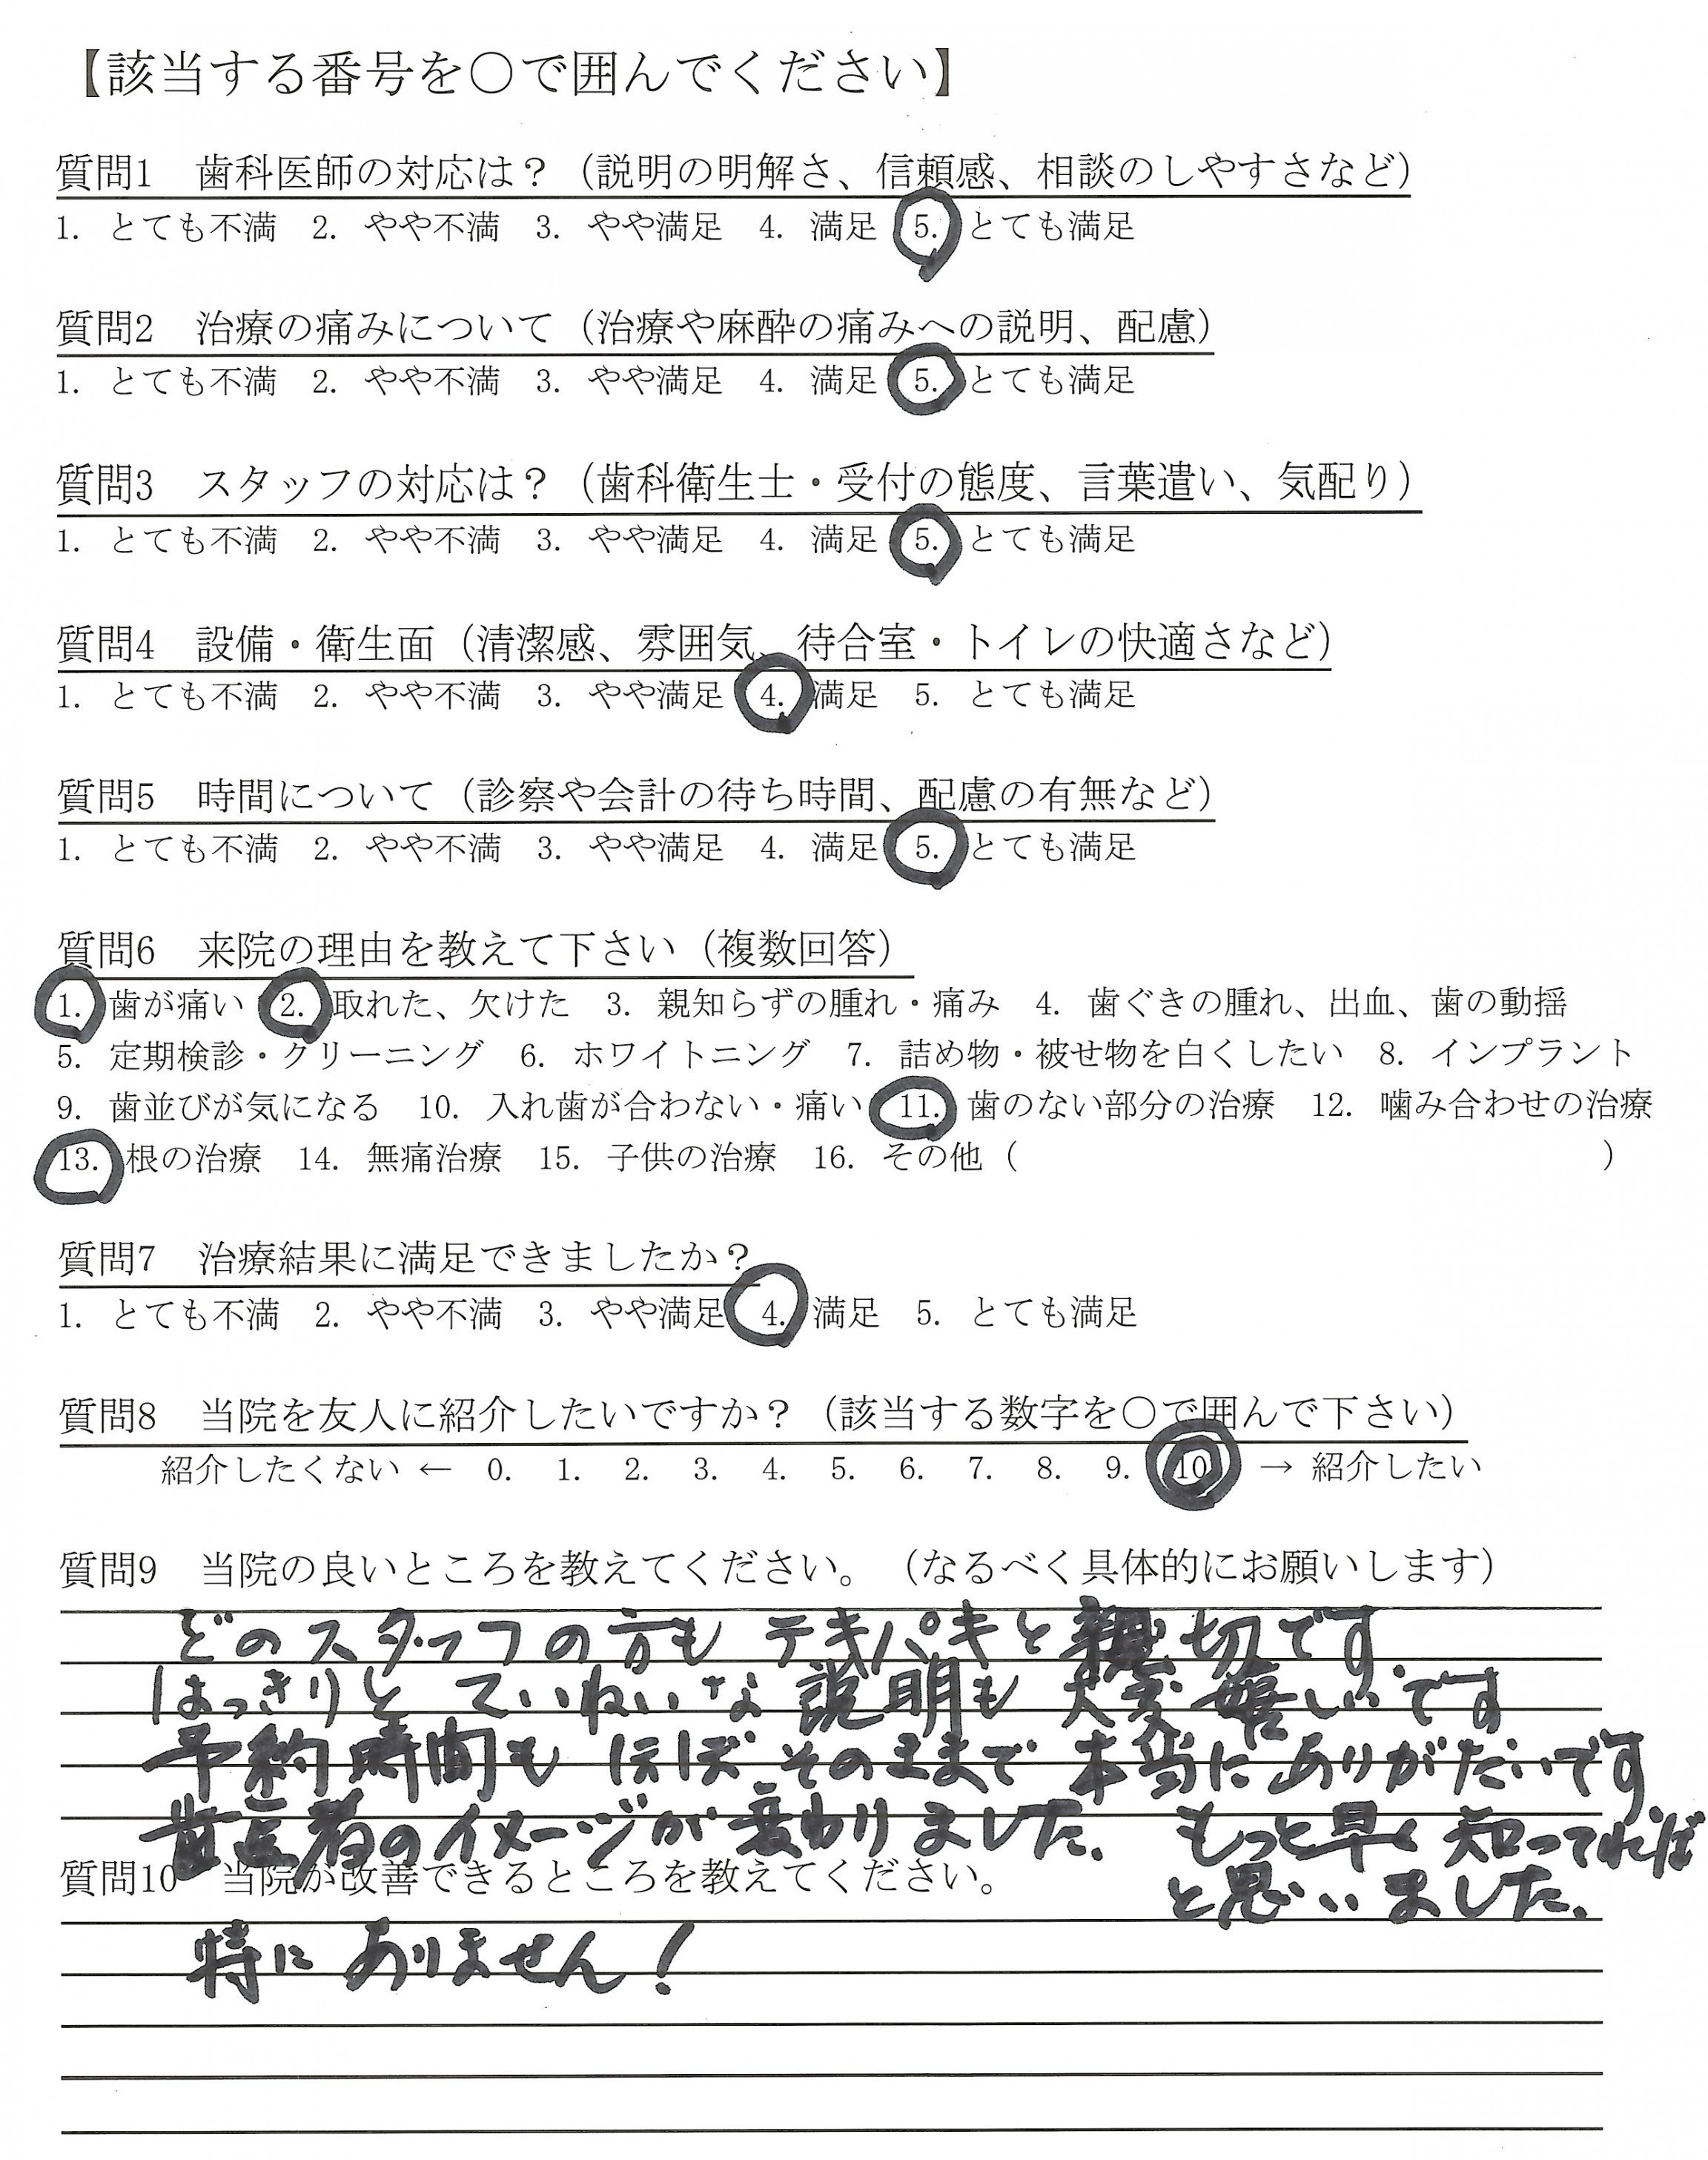 【該当する番号を○で囲んでください】
質問1　歯科医師の対応は？（説明の明解さ、信頼感、相談のしやすさなど）
1. とても不満　2. やや不満　3. やや満足　4. 満足　5. とても満足
質問2　治療の痛みについて（治療や麻酔の痛みへの説明、配慮）
1. とても不満　2. やや不満　3. やや満足　4. 満足　5. とても満足
質問3　スタッフの対応は？（歯科衛生士・受付の態度、言葉遣い、気配り）
1. とても不満　2. やや不満　3. やや満足　4. 満足　5. とても満足
質問4　設備・衛生面（清潔感、雰囲気、待合室・トイレの快適さなど）
1. とても不満　2. やや不満　3. やや満足　4. 満足　5. とても満足
質問5　時間について（診察や会計の待ち時間、配慮の有無など）
1. とても不満　2. やや不満　3. やや満足　4. 満足　5. とても満足
質問6　来院の理由を教えて下さい（複数回答）
1. 歯が痛い　2. 取れた、欠けた　3. 親知らずの腫れ・痛み　4. 歯ぐきの腫れ、出血、歯の動揺
5. 定期検診・クリーニング　6. ホワイトニング　7. 詰め物・被せ物を白くしたい　8. インプラント
9. 歯並びが気になる　10. 入れ歯が合わない・痛い　11. 歯のない部分の治療　12. 噛み合わせの治療
13. 根の治療　14. 無痛治療　15. 子供の治療　16. その他（　　　　　）
質問7　治療結果に満足できましたか？
1. とても不満　2. やや不満　3. やや満足　4. 満足　5. とても満足
質問8　当院を友人に紹介したいですか？（該当する数字を○で囲んで下さい）
紹介したくない ← 0. 1. 2. 3. 4. 5. 6. 7. 8. 9. 10 → 紹介したい
質問9　当院の良いところを教えてください。（なるべく具体的にお願いします）
どのスタッフの方も テキパキと親切です
はっきりと ていねいな 説明も 大変嬉しいです
予約時間も ほぼ そのままで 本当に ありがたいです
歯医者のイメージが変わりました、 もっと早く 知ってれば
と思いました、
質問10　当院が改善できるところを教えてください。
特に ありません！